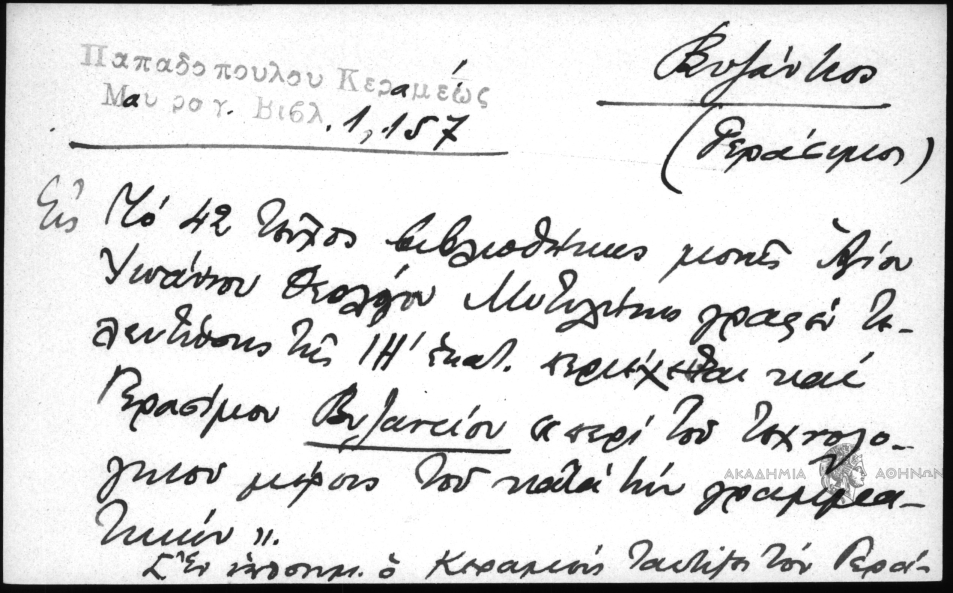 Παπαδοπουλου Κεραμέως
Μαυρογ. Βιβλ. 1,157
Βυζάντιος
(Γεράσιμος)
Εἰς τό 42 τεῦχος βιβλιοθήκης μονῆς Ἁγίου
Ἰωάννου Θεολόγου Μυτιλήνης γραφέν τε-
λευτῶσης τῆς ΙΗ' ἑκατ. περιέχεται καί
Γερασίμου Βυζαντίου «περί τοῦ τεχνολο-
γικοῦ μέρους τοῦ κατά τήν γραμμα-
τικήν».
ΑΚΑΔΗΜΙΑ ΑΘΗΝΩΝ
Ἐν ὑποσημ. ὁ Κεραμεύς ταυτίζει τόν Γερά-